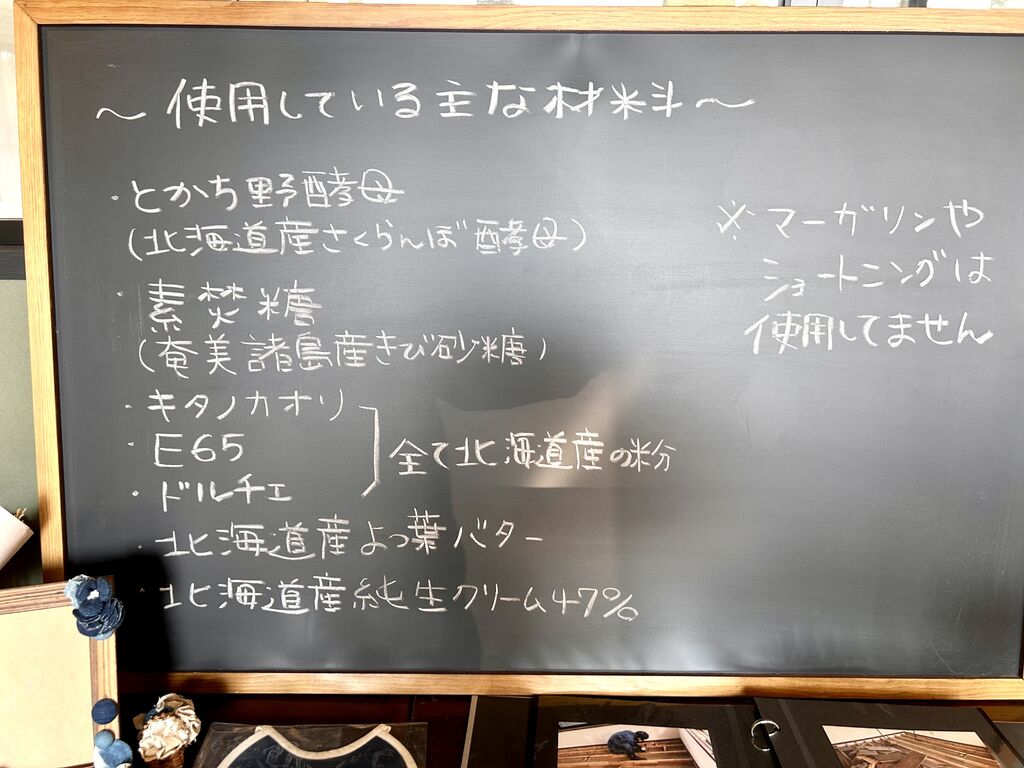 ～使用している主な材料～
・とかち野酵母
(北海道産さくらんぼ酵母)
・素焚糖
(奄美諸島産きび砂糖)
・キタノカオリ
・E65
・ドルチェ
全て北海道産の粉
・北海道産よつ葉バター
・北海道産純生クリーム47%
※マーガリンや
ショートニングは
使用してません